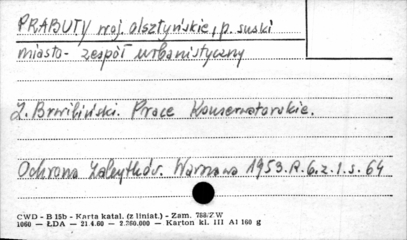 PRABUTY woj. olsztyńskie, p. suski
miasto - zespół urbanistyczny
Z. Brwibiński. Prace Konserwatorskie.
Ochrona Zabytków. Warszawa 1953. R. 6. z. 1. s. 64
CWD - B 15b - Karta katal. (z liniat.) - Zam. 788/ZW
1060 — ŁDA — 21 4.60 — 2.360.000 — Karton kl. III A1 160 g